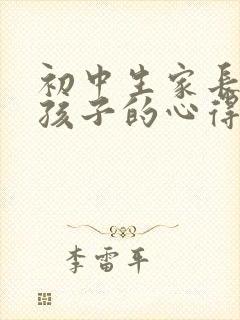 初中生家长
孩子的心得
李雷平